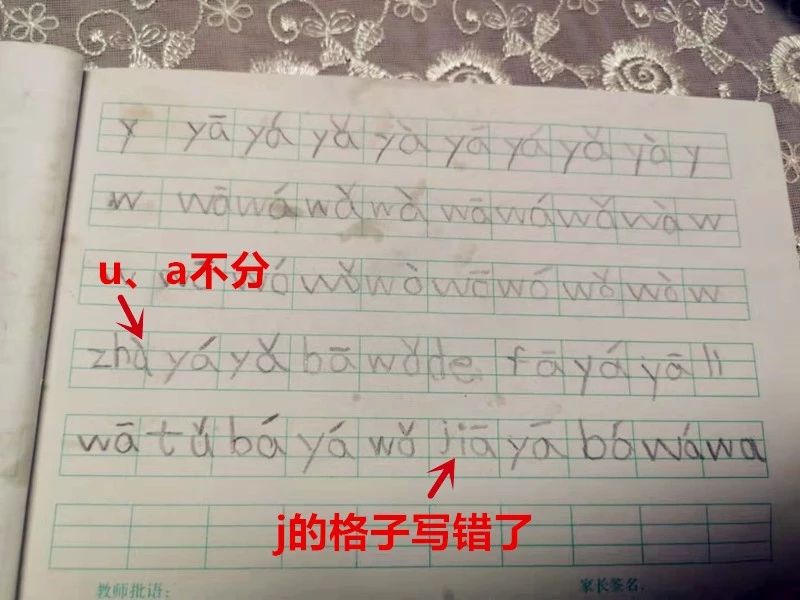 y yā yá yǎ yà yā yá yǎ yà y
w wā wá wǎ wà wā wá wǎ wà w
u、a不分
wó wǒ wò wō wó wǒ wò w
zhà yá yǎ bā wǒ de fā yá yā li
wā tǔ bá yá wǒ jiā yá bó wá wa
j的格子写错了
教师批语：
家长签名.